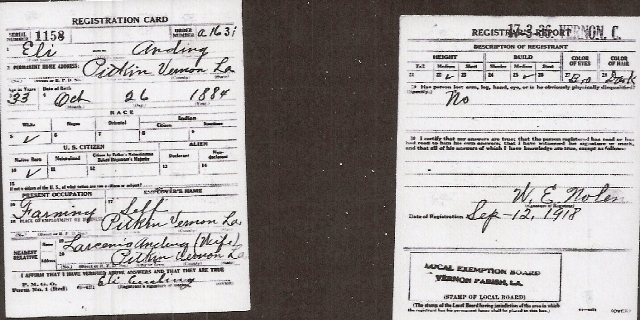 REGISTRATION CARD
SERIAL NUMBER 1158 ORDER NUMBER A1631
1 Eli Anding
2 PERMANENT HOME ADDRESS:
Pitkin Vernon La
Age in Years Date of Birth
33 Oct 26 1884
RACE
White Negro Oriental Indian
Citizen Noncitizen
5 ✓ 6 7 8 9
U. S. CITIZEN ALIEN
Native Born Naturalized Citizen by Father's Naturalization Before Registrant's Majority Declarant Non-declarant
10 ✓ 11 12 13 14
15 If not a citizen of the U. S., of what nation are you a citizen or subject?
PRESENT OCCUPATION EMPLOYER'S NAME
16 Farming 17 Self
18 PLACE OF EMPLOYMENT OR BUSINESS
Pitkin Vernon La
NEAREST RELATIVE Name 19 Anding (Wife)
Address 20 Pitkin Vernon La
I AFFIRM THAT I HAVE VERIFIED ABOVE ANSWERS AND THAT THEY ARE TRUE
P. M. G. O.
Form No. 1 (Red) Eli Anding
REGISTRAR'S REPORT
17-3-36 VERNON, C.
DESCRIPTION OF REGISTRANT
HEIGHT BUILD COLOR OF EYES COLOR OF HAIR
Tall Medium Short Slender Medium Stout
21 22 ✓ 23 24 25 ✓ 26 27 Bro 28 Dark
29 Has person lost arm, leg, hand, eye, or is he obviously physically disqualified?
(Specify.)
No
30 I certify that my answers are true; that the person registered has read or has
had read to him his own answers; that I have witnessed his signature or mark,
and that all of his answers of which I have knowledge are true, except as follows:
W. E. Nolen
Date of Registration Sep-12, 1918
LOCAL EXEMPTION BOARD
VERNON PARISH, LA.
(STAMP OF LOCAL BOARD)
(The stamp of the Local Board having jurisdiction of the area in which
the registrant has his permanent home shall be placed in this box.)